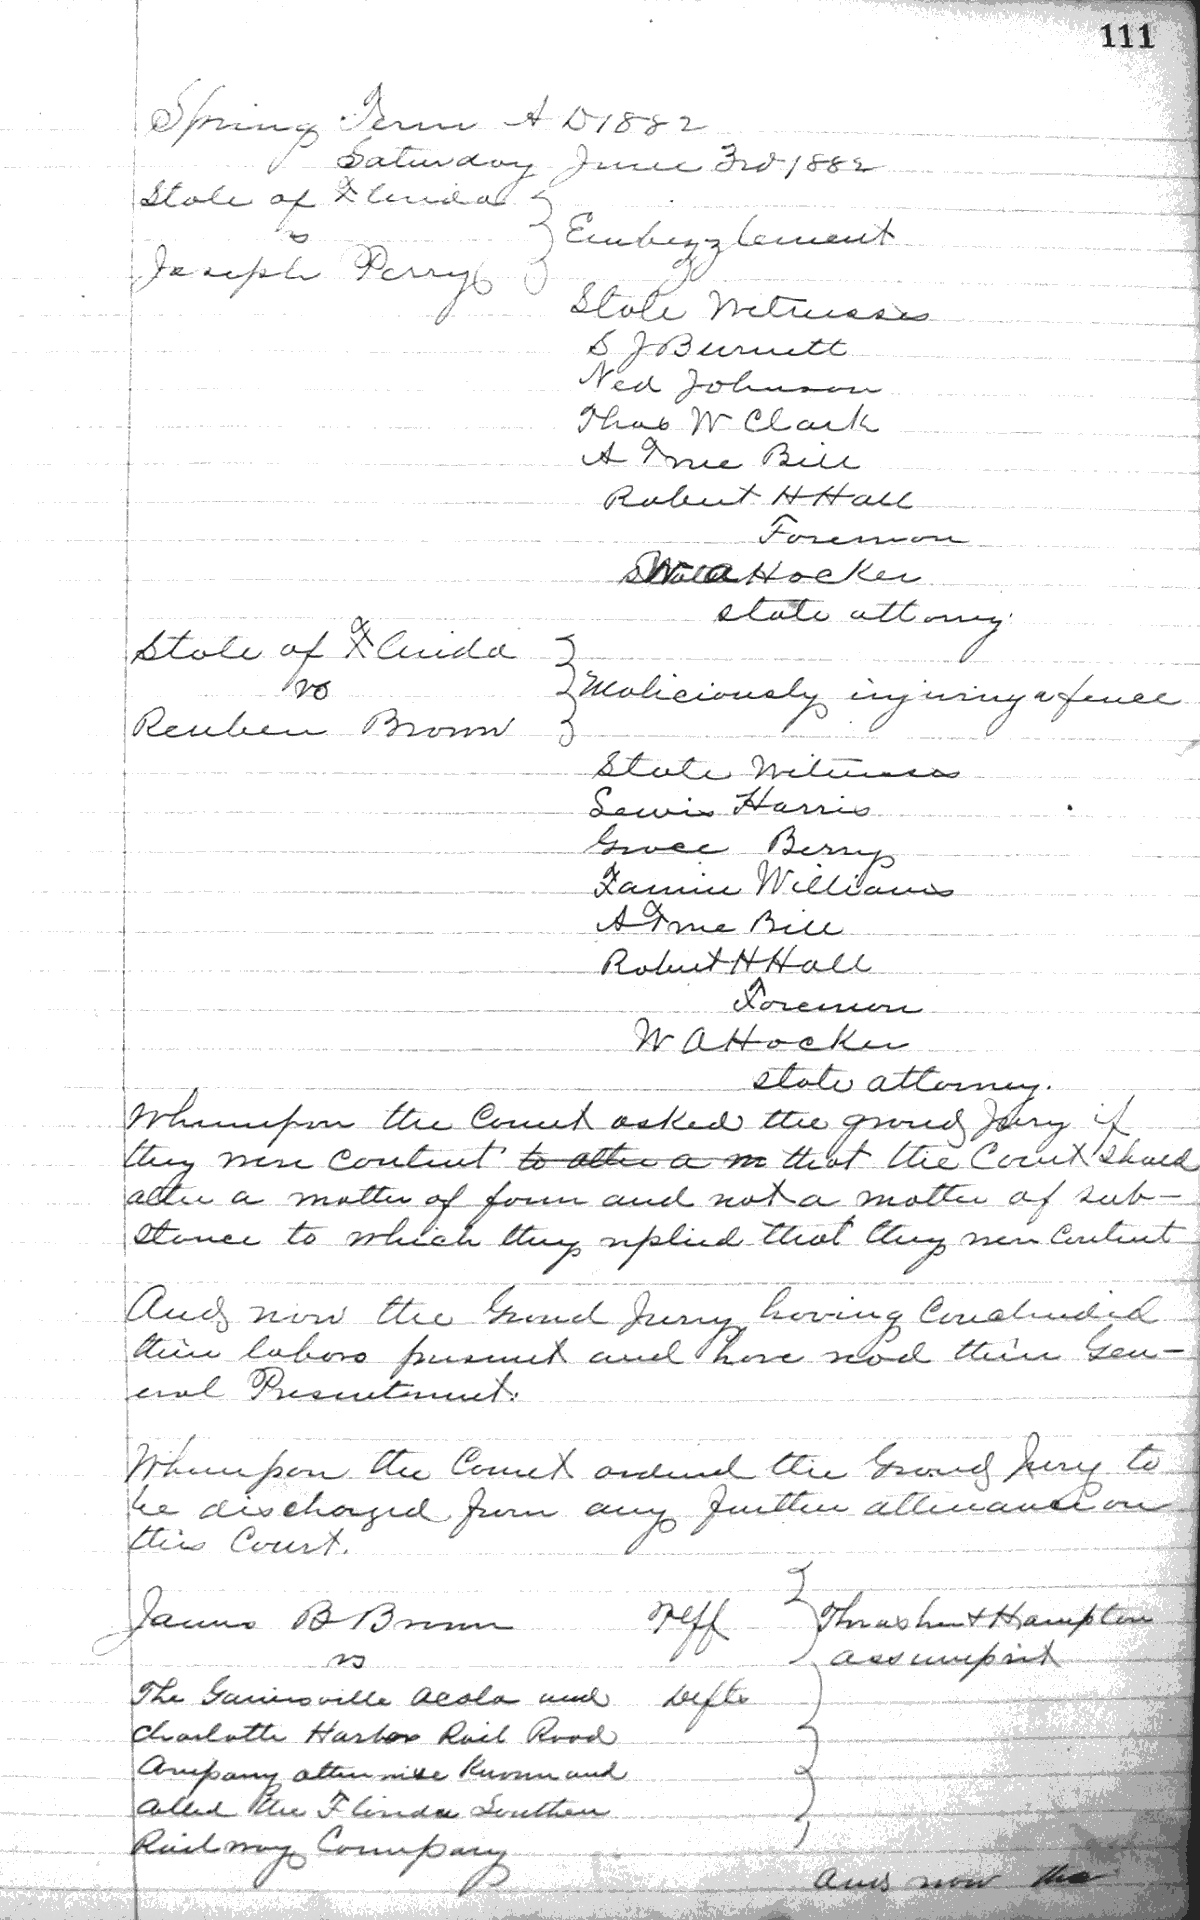 111
Spring Term A D 1882
Saturday June 3rd 1882
State of Florida
vs
Embezzlement
Joseph Perry
State Witnesses
S J Burnett
Ned Johnson
Thos W Clark
A True Bill
Robert H Hall
Foreman
W A Hocker
state attorney
State of Florida
vs
Maliciously injuring a fence
Reuben Brown
State Witnesses
Lewis Harris
Grace Berry
Fannie Williams
A True Bill
Robert H Hall
Foreman
W A Hocker
state attorney.
Whereupon the Court asked the grand Jury if
they were content to alter a m that the Court should
alter a matter of form and not a matter of sub-
stance to which they replied that they were content
And now the Grand Jury having Concluded
their labors present and have read their Gen-
eral Presentment:
Whereupon the Court ordered the Grand Jury to
be discharged from any further attenance on
this Court.
James B Brown Plff Thrasher & Hampton
vs assumpsit
The Gainesville Ocala and Defts
Charlotte Harbor Rail Road
Company otherwise Known and
Called the Florida Southern
Railway Company
And now the